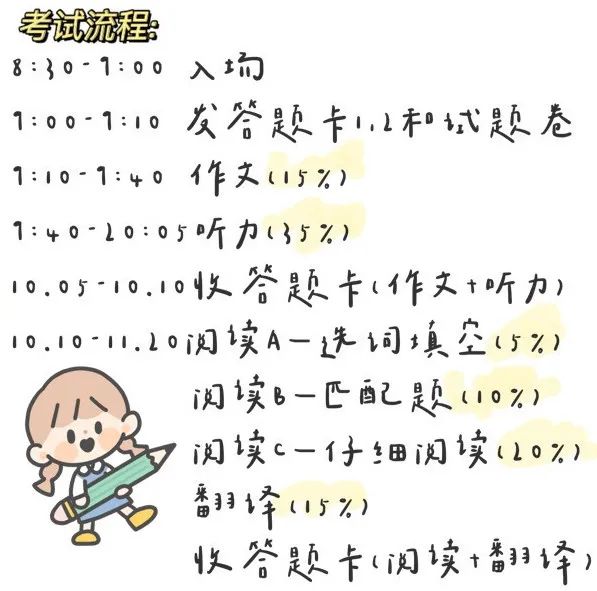 考试流程:
8:30-9:00 入场
9:00-9:10 发答题卡1,2和试题卷
9:10-9:40 作文(15%)
9:40-20:05听力(35%)
10.05-10.10收答题卡(作文+听力)
10.10-11.20阅读A-选词填空(5%)
阅读B-匹配题(10%)
阅读C-仔细阅读(20%)
翻译(15%)
收答题卡(阅读+翻译)